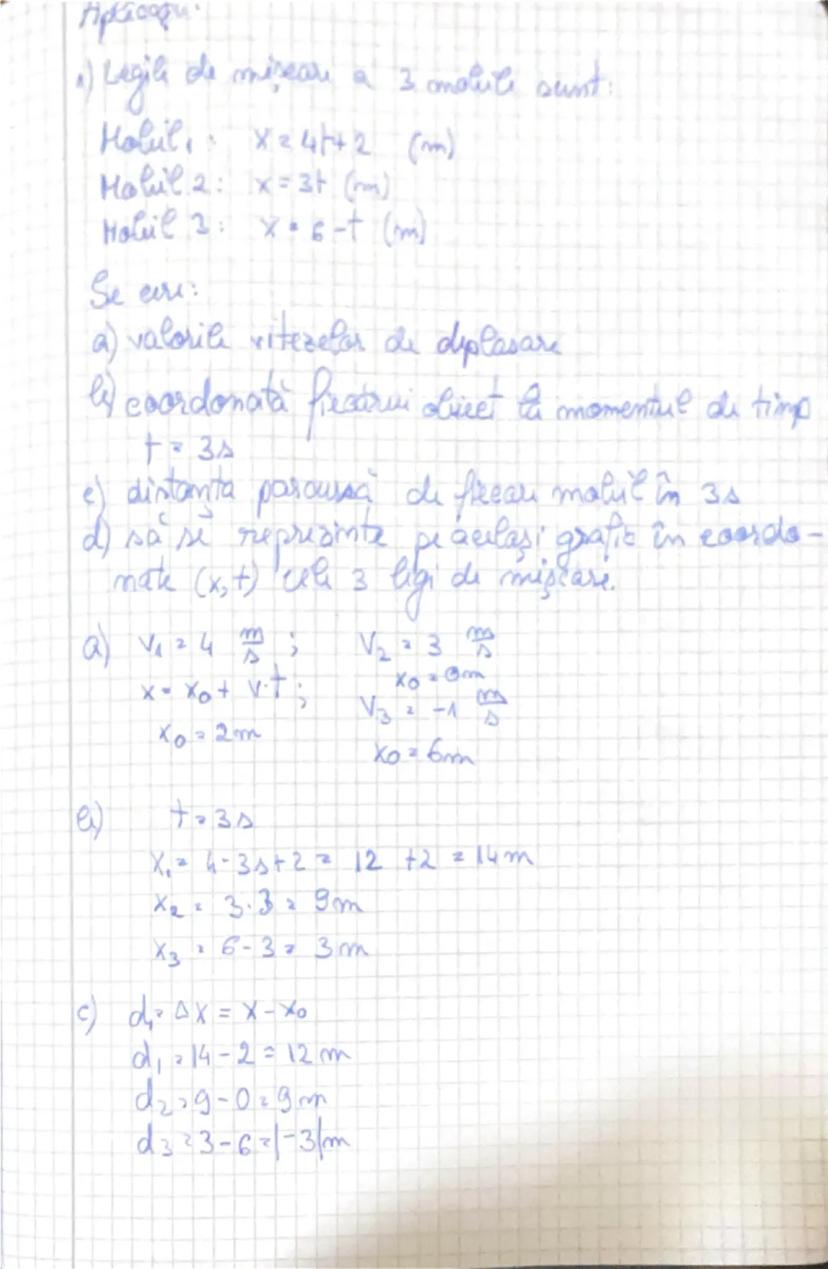 Aplicații.
1) Legile de mișcare a 3 mobile sunt:
Mobil 1: x = 4t+2 (m)
Mobil 2: x = 3t (m)
Mobil 3: x = 6-t (m)
Se cere:
a) valorile vitezelor de deplasare
b) coordonată fiecărui obiect la momentul de timp
t = 3s
c) distanța parcursă de fiecare mobil în 3s
d) să se reprezinte pe același grafic în coordo-
nate (x,t) cele 3 legi de mișcare.
a) V₁ = 4 m/s ; V₂ = 3 m/s
x = x₀ + v·t ; x₀ = 0m
V₃ = -1 m/s
x₀ = 2m
x₀ = 6m
b) t = 3s
x₁ = 4·3s+2 = 12 +2 = 14m
x₂ = 3·3 = 9m
x₃ = 6-3 = 3m
c) d₁ = Δx = x-x₀
d₁ = 14-2 = 12m
d₂ = 9-0 = 9m
d₃ = 3-6 = |-3|m